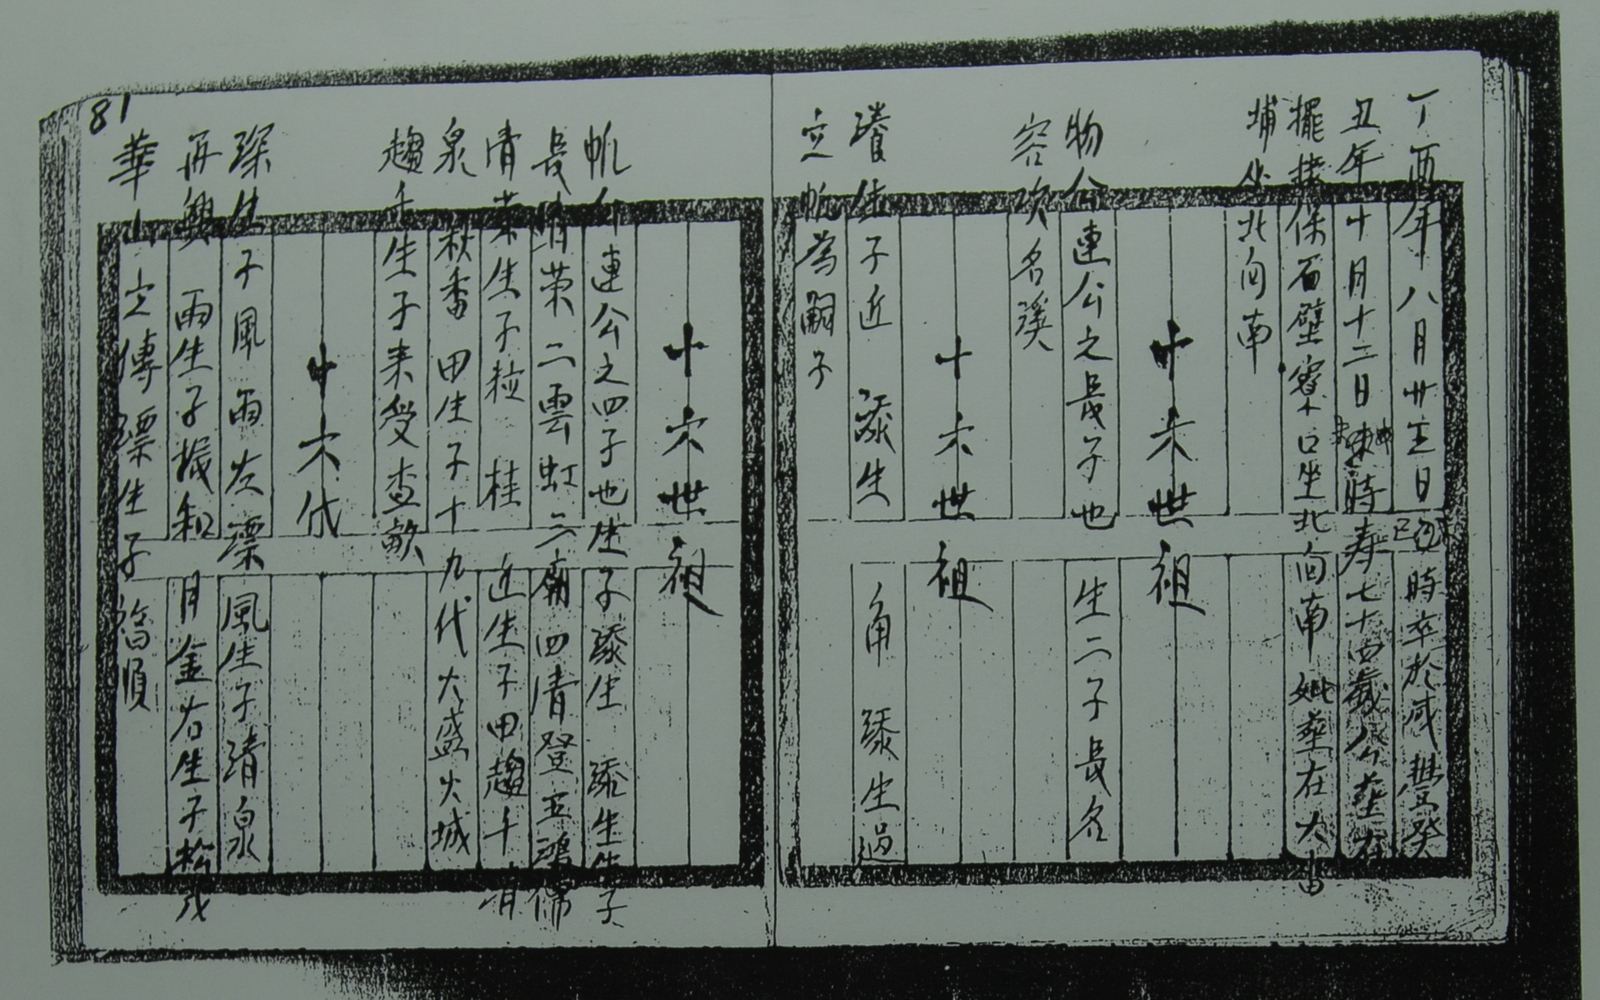 丁酉年八月廿五日時卒於咸豐癸
丑年十月十二日時寿七十四歲公葬在
擺接保石壁寮口坐北向南妣葬在大
埔坐北向南
十六世祖
物公連公之長子也生二子長名
容次名溪
十六世祖
養生子近添生角添生過
立帆為嗣子
十六世祖
帆公連公之四子也生子添生添生生子
長清荣二雲虹三廟四清登五鴻儒
清荣生子粒桂近生子田趨千有
泉秋香田生子十九代火盛火城
趨千生子来受查畝
十六代
琛生子風雨左瓢風生子清泉
再興雨生子機和月金右生子松茂
華山立傳瓢生子裕順
81